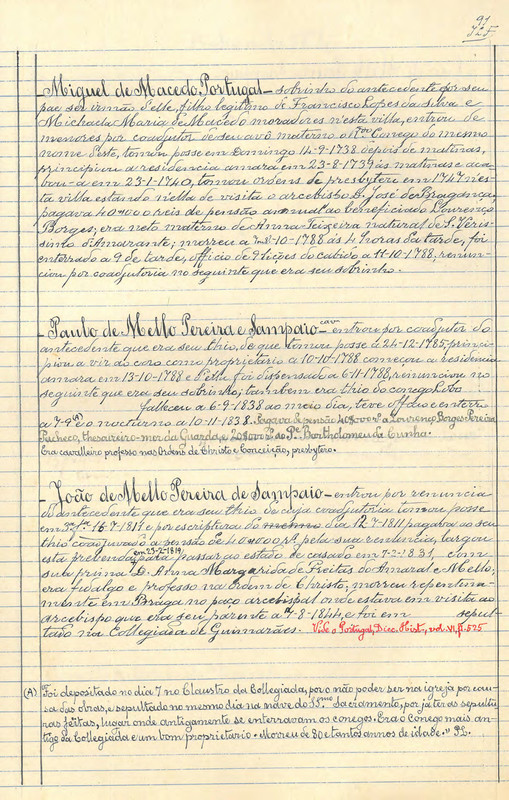 91
72F
- Miguel de Macedo, Portugal - sobrinho do antecedente por seu
pae ser irmão d'elle, filho legitimo de Francisco Lopes da Silva e
Michaela Maria de Macedo moradores n'esta villa, entrou de
menores por coadjutor de seu avô materno o Rdo Conego do mesmo
nome d'este, tomou posse em Domingo 14-9-1738 depois de matinas,
principiou a residencia amara em 23-8-1739 ás matinas e aca-
bou-a em 23-1-1740, tomou ordens de presbytero em 1747 n'es-
ta villa estando n'ella de visita o arcebispo D. José de Bragança,
pagava 40$000 reis de pensão annual ao beneficiado Lourenço
Borges; era neto materno de Anna Teixeira natural de S. Veris-
simo d'Amarante; morreu a -10-1788 ás 4 horas da tarde, foi
enterrado a 9 de tarde, officio de 9 lições do cabido a 11-10-1788, renun-
ciou por coadjutoria no seguinte que era seu sobrinho.
- Paulo de Mello Pereira e Sampaio - entrou por coadjutor do
antecedente que era seu thio, de que tomou posse a 24-12-1785, princi-
piou a vir ao coro como proprietario a 10-10-1788 começou a residencia
amara em 13-10-1788 e d'ella foi dispensado a 6-11-1788, renunciou no
seguinte que era seu sobrinho, tambem era thio do conego Lobo
falleceu a 6-9-1838 ao meio dia, teve officio e enterro
a 7-9 (A) e o nocturno a 10-11-1838. Pagava de pensão 40$000 rs a Lourenço Borges Pereira
Pacheco, thesoureiro-mor da Guarda, e 20$000 rs ao Pe Bartholomeu da Cunha.
Era cavalleiro professo nas Ordens de Christo e Conceição, presbytero.
- João de Mello Pereira de Sampaio - entrou por renuncia
do antecedente que era seu thio de cuja coadjutoria tomou posse
em 3ª fra 16-7-1811 e por escriptura do mesmo dia 12-7-1811 pagava ao seu
thio coadjuvado a pensão de 40$000 rs, pela sua renuncia, largou
esta prebenda em 23-2-1819, para passar ao estado de casado em 7-2-1831, com
sua prima D. Anna Margarida de Freitas do Amaral e Mello;
era fidalgo e professo na Ordem de Christo; morreu repentina-
mente em Braga no paço arcebispal onde estava em visita ao
arcebispo que era seu parente a 7-8-1844, e foi em sepul-
tado na Collegiada de Guimarães. Vide o Portugal, Dicc. Hist., vol. VI, fl. 525
(A) "Foi depositado no dia 7 no Claustro da Collegiada, por o não poder ser na igreja por cau-
sa das obras, e sepultado no mesmo dia na nave do SS.mo Sacramento, por já ter as sepultu-
ras feitas, lugar onde antigamente se enterravam os conegos. Era o conego mais an-
tigo da Collegiada e um bom proprietario. Morreu de 80 e tantos annos de idade." PL.